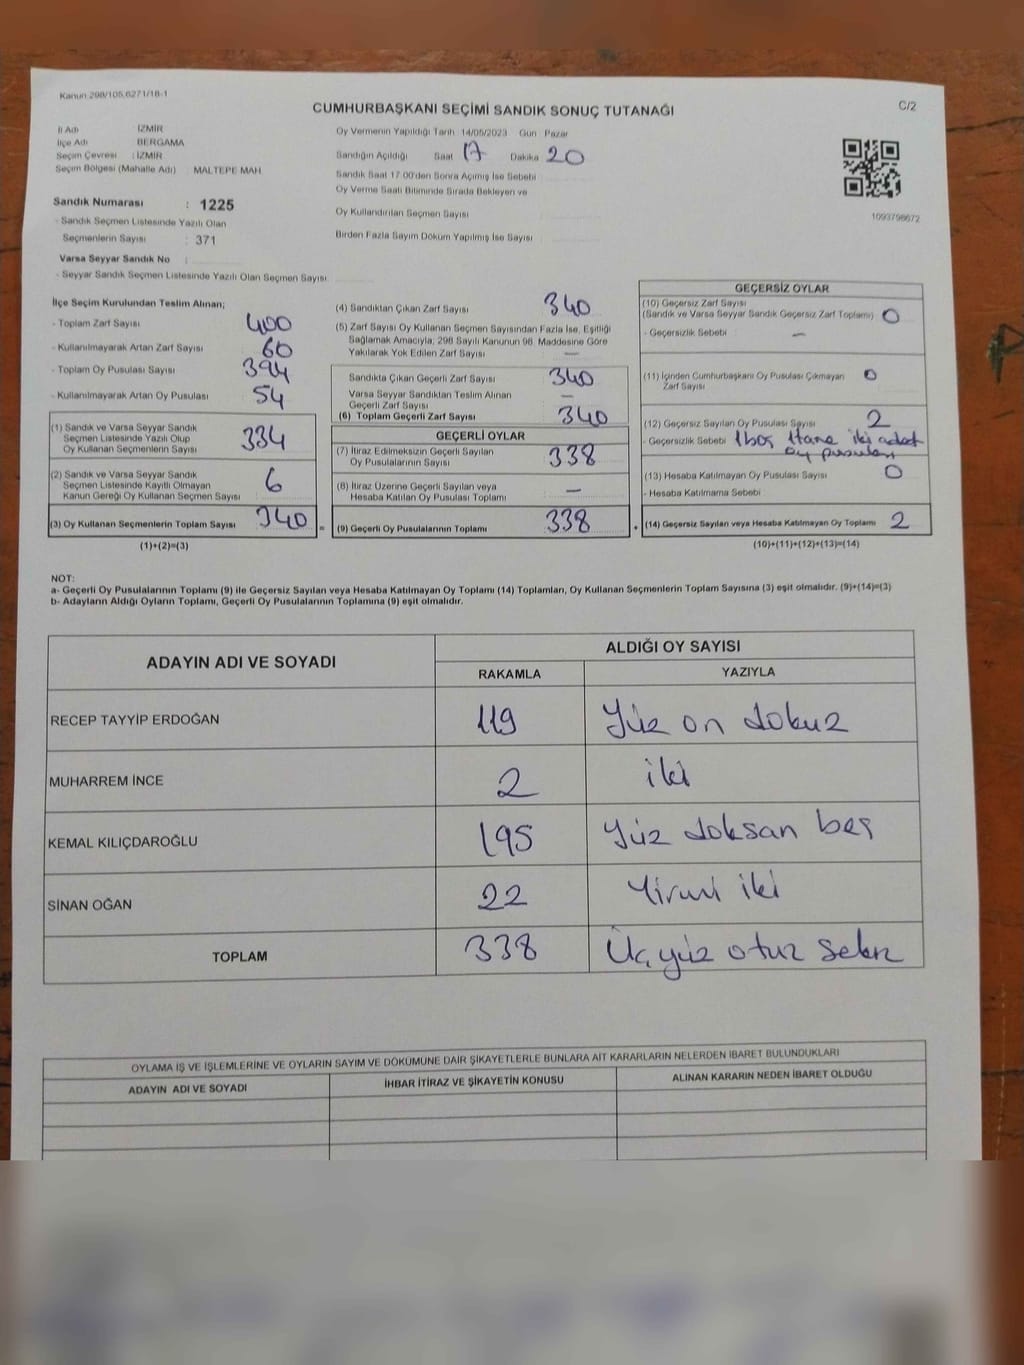 Kanun 298/105,6271/18-1
C/2
CUMHURBAŞKANI SEÇİMİ SANDIK SONUÇ TUTANAĞI
İl Adı İZMİR
İlçe Adı BERGAMA
Seçim Çevresi : İZMİR
Seçim Bölgesi (Mahalle Adı) MALTEPE MAH
Sandık Numarası : 1225
- Sandık Seçmen Listesinde Yazılı Olan
Seçmenlerin Sayısı : 371
Varsa Seyyar Sandık No :
- Seyyar Sandık Seçmen Listesinde Yazılı Olan Seçmen Sayısı
Oy Vermenin Yapıldığı Tarih 14/05/2023 Gün Pazar
Sandığın Açıldığı Saat 17 Dakika 20
Sandık Saat 17:00'den Sonra Açımış İse Sebebi
Oy Verme Saati Bitiminde Sırada Bekleyen ve
Oy Kullandırılan Seçmen Sayısı
Birden Fazla Sayım Döküm Yapılmış İse Sayısı
1093798672
İlçe Seçim Kurulundan Teslim Alınan;
- Toplam Zarf Sayısı 400
- Kullanılmayarak Artan Zarf Sayısı 60
- Toplam Oy Pusulası Sayısı 394
- Kullanılmayarak Artan Oy Pusulası 54
(1) Sandık ve Varsa Seyyar Sandık
Seçmen Listesinde Yazılı Olup
Oy Kullanan Seçmenlerin Sayısı 334
(2) Sandık ve Varsa Seyyar Sandık
Seçmen Listesinde Kayıtlı Olmayan
Kanun Gereği Oy Kullanan Seçmen Sayısı 6
(3) Oy Kullanan Seçmenlerin Toplam Sayısı 340 =
(1)+(2)=(3)
(4) Sandıktan Çıkan Zarf Sayısı 340
(5) Zarf Sayısı Oy Kullanan Seçmen Sayısından Fazla İse, Eşitliği
Sağlamak Amacıyla, 298 Sayılı Kanunun 98. Maddesine Göre
Yakılarak Yok Edilen Zarf Sayısı —
Sandıkta Çıkan Geçerli Zarf Sayısı 340
Varsa Seyyar Sandıktan Teslim Alınan
Geçerli Zarf Sayısı —
(6) Toplam Geçerli Zarf Sayısı 340
GEÇERLİ OYLAR
(7) İtiraz Edilmeksizin Geçerli Sayılan
Oy Pusulalarının Sayısı 338
(8) İtiraz Üzerine Geçerli Sayılan veya
Hesaba Katılan Oy Pusulası Toplamı —
(9) Geçerli Oy Pusulalarının Toplamı 338 +
GEÇERSİZ OYLAR
(10) Geçersiz Zarf Sayısı
(Sandık ve Varsa Seyyar Sandık Geçersiz Zarf Toplamı) 0
- Geçersizlik Sebebi —
(11) İçinden Cumhurbaşkanı Oy Pusulası Çıkmayan
Zarf Sayısı 0
(12) Geçersiz Sayılan Oy Pusulası Sayısı 2
- Geçersizlik Sebebi 1 boş 1 tane iki adet
oy pusulası
(13) Hesaba Katılmayan Oy Pusulası Sayısı 0
- Hesaba Katılmama Sebebi
(14) Geçersiz Sayılan veya Hesaba Katılmayan Oy Toplamı 2
(10)+(11)+(12)+(13)=(14)
NOT:
a- Geçerli Oy Pusulalarının Toplamı (9) ile Geçersiz Sayılan veya Hesaba Katılmayan Oy Toplamı (14) Toplamları, Oy Kullanan Seçmenlerin Toplam Sayısına (3) eşit olmalıdır. (9)+(14)=(3)
b- Adayların Aldığı Oyların Toplamı, Geçerli Oy Pusulalarının Toplamına (9) eşit olmalıdır.
ADAYIN ADI VE SOYADI
ALDIĞI OY SAYISI
RAKAMLA YAZIYLA
RECEP TAYYİP ERDOĞAN 119 Yüz on dokuz
MUHARREM İNCE 2 iki
KEMAL KILIÇDAROĞLU 195 Yüz doksan beş
SİNAN OĞAN 22 Yirmi iki
TOPLAM 338 Üçyüz otuz sekiz
OYLAMA İŞ VE İŞLEMLERİNE VE OYLARIN SAYIM VE DÖKÜMÜNE DAİR ŞİKAYETLERLE BUNLARA AİT KARARLARIN NELERDEN İBARET BULUNDUKLARI
ADAYIN ADI VE SOYADI İHBAR İTİRAZ VE ŞİKAYETİN KONUSU ALINAN KARARIN NEDEN İBARET OLDUĞU